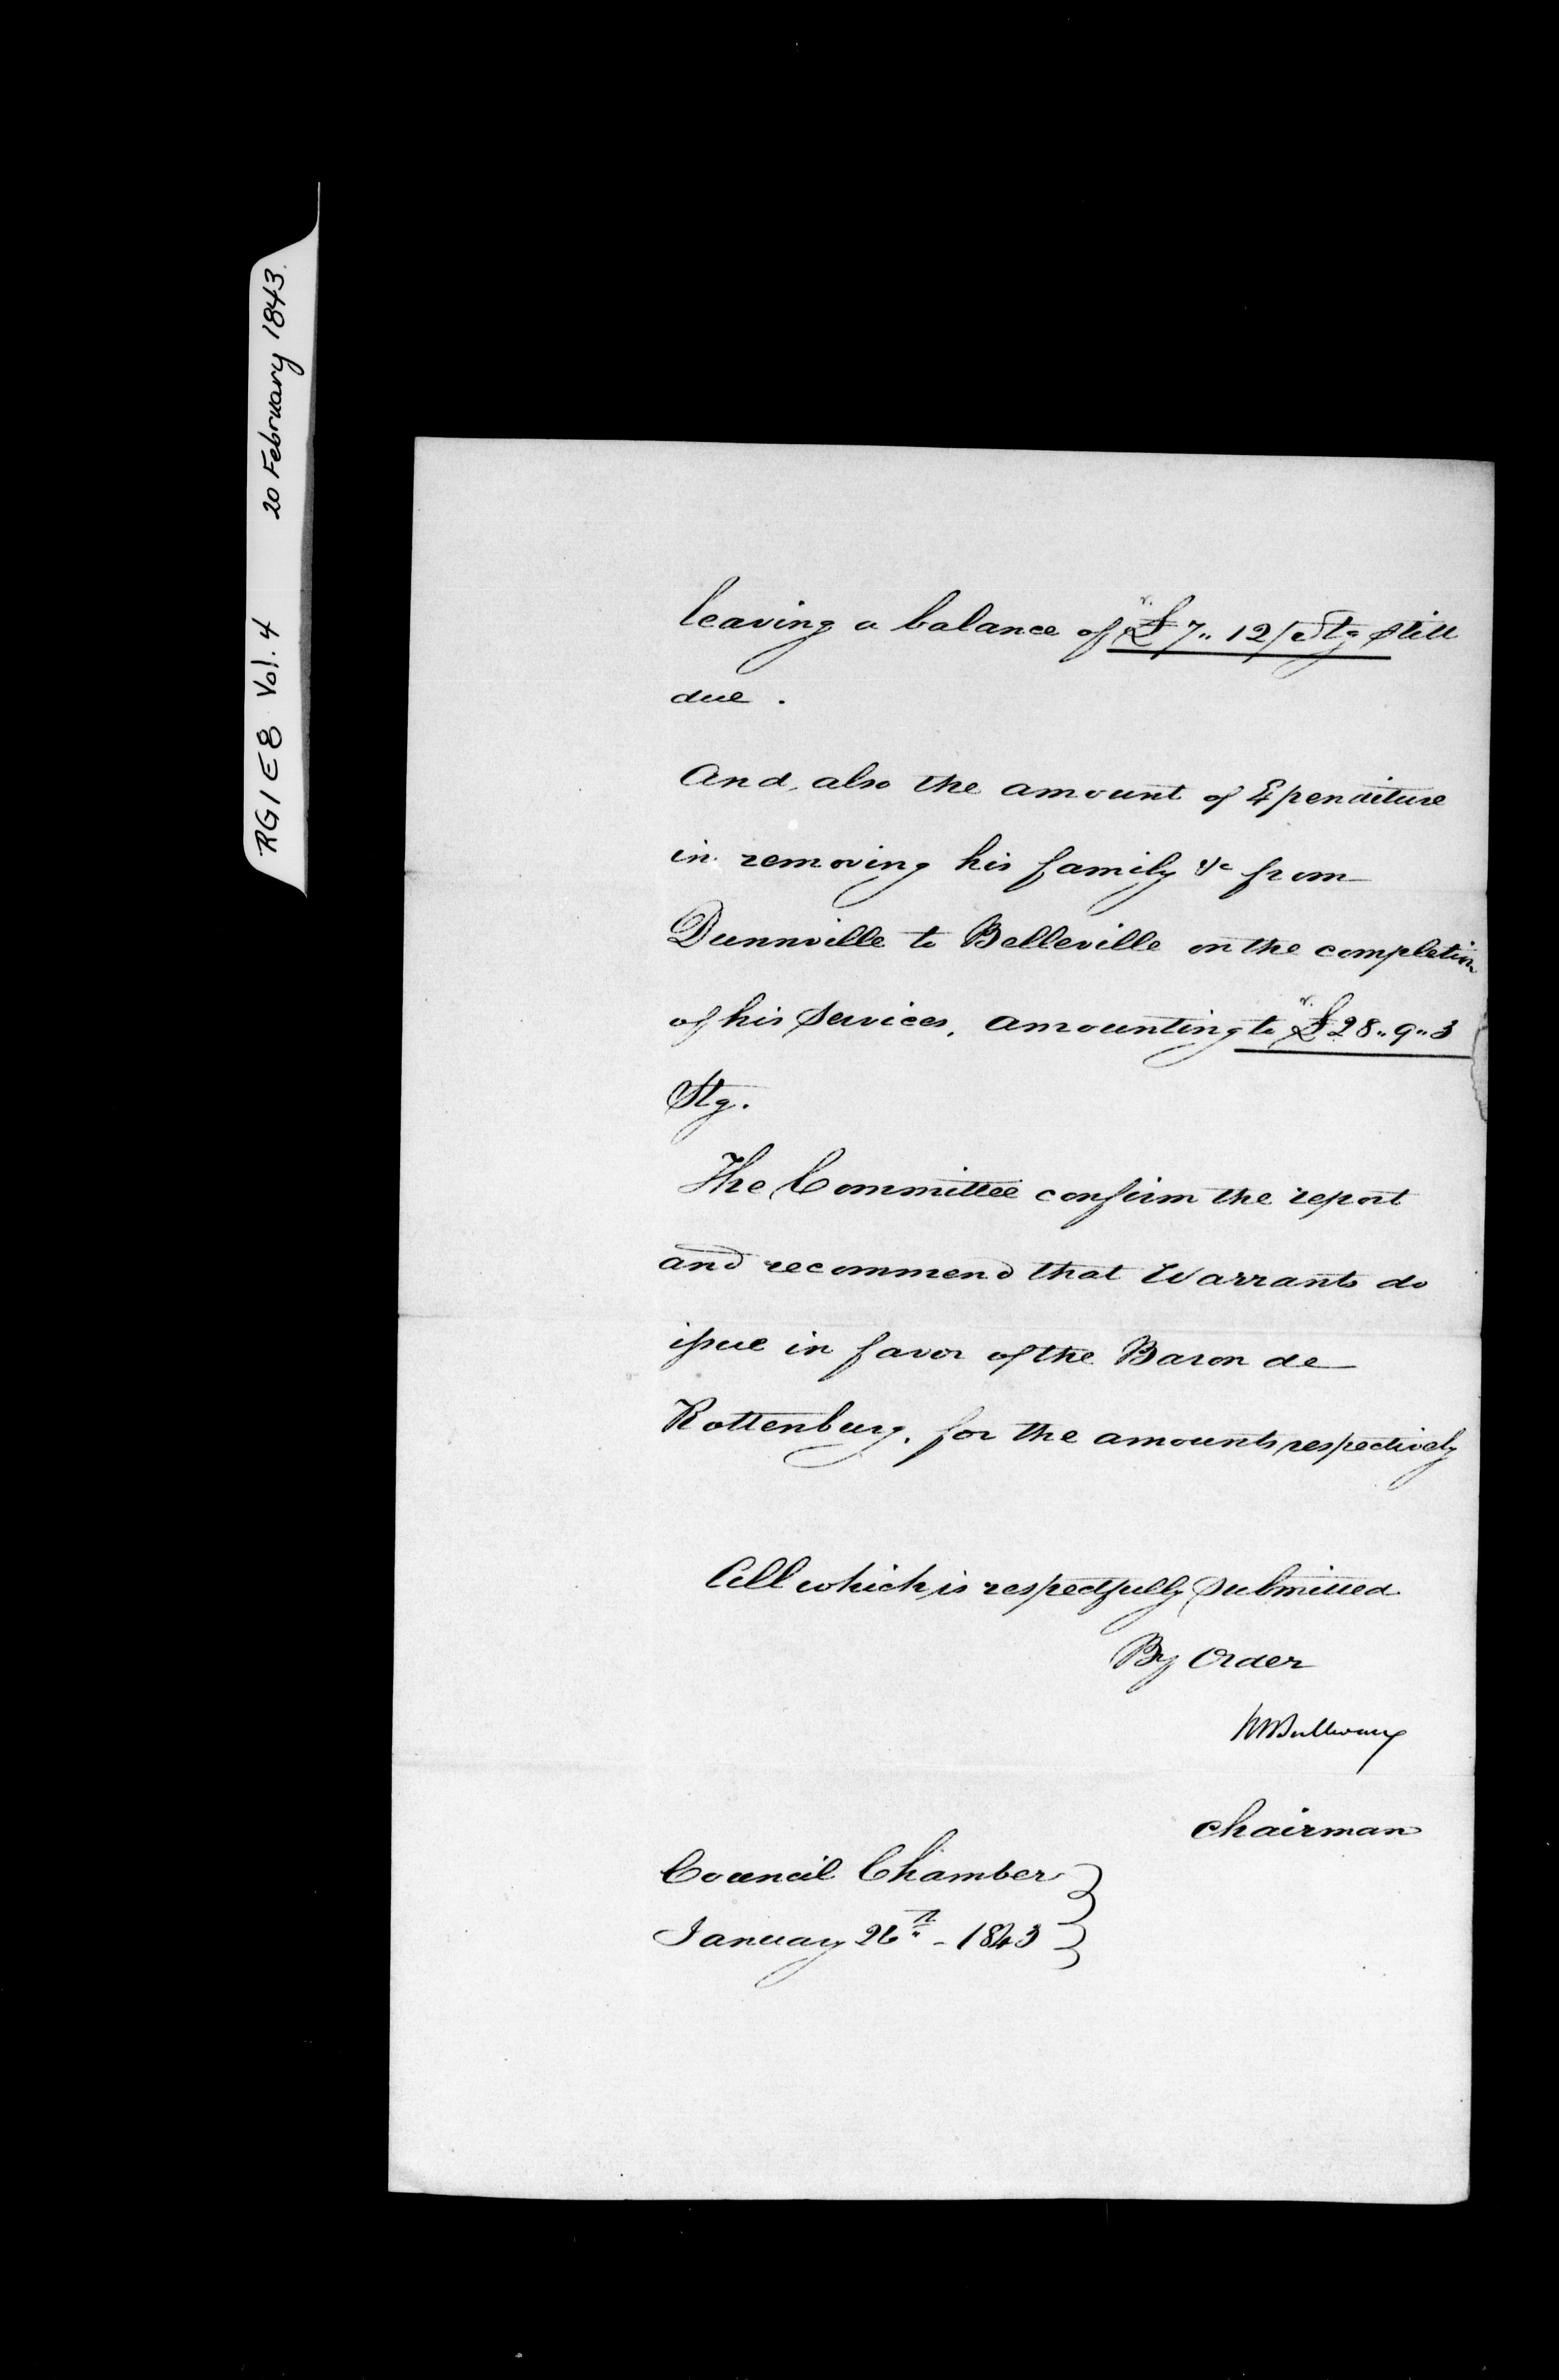 RG1 E8 Vol. 4 20 February 1843.
leaving a balance of £7.. 12/ Stg still
due.
And, also the amount of Expenditure
in removing his family &c from
Dunnville to Belleville on the completion
of his Services, amounting to £28..9..3
Stg.
The Committee confirm the report
and recommend that Warrants do
issue in favor of the Baron de
Rottenburg, for the amounts respectively
All which is respectfully submitted
By Order
chairman
Council Chamber
January 26th - 1843